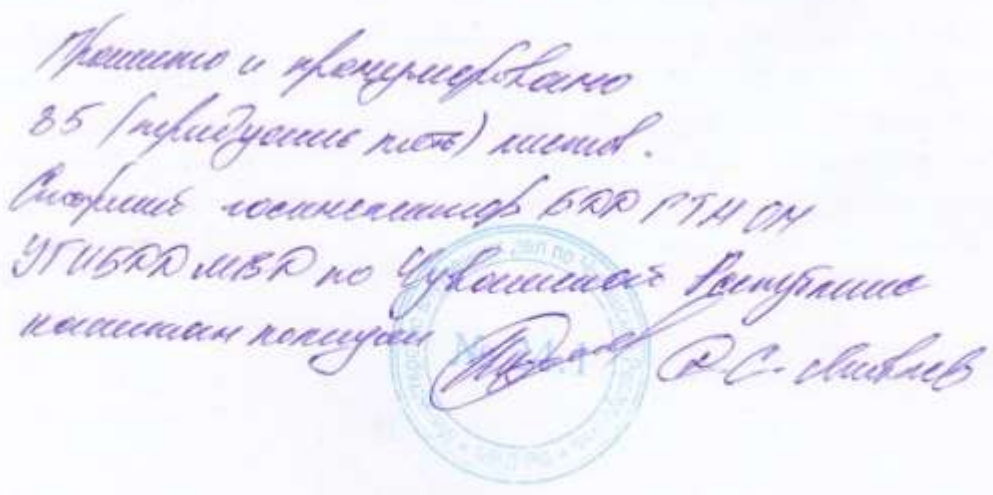 Прошито и пронумеровано
35 (тридцать пять) листов.
Старший госинспектор БДД РТН ОН
УГИБДД МВД по Чувашской Республике
капитан полиции